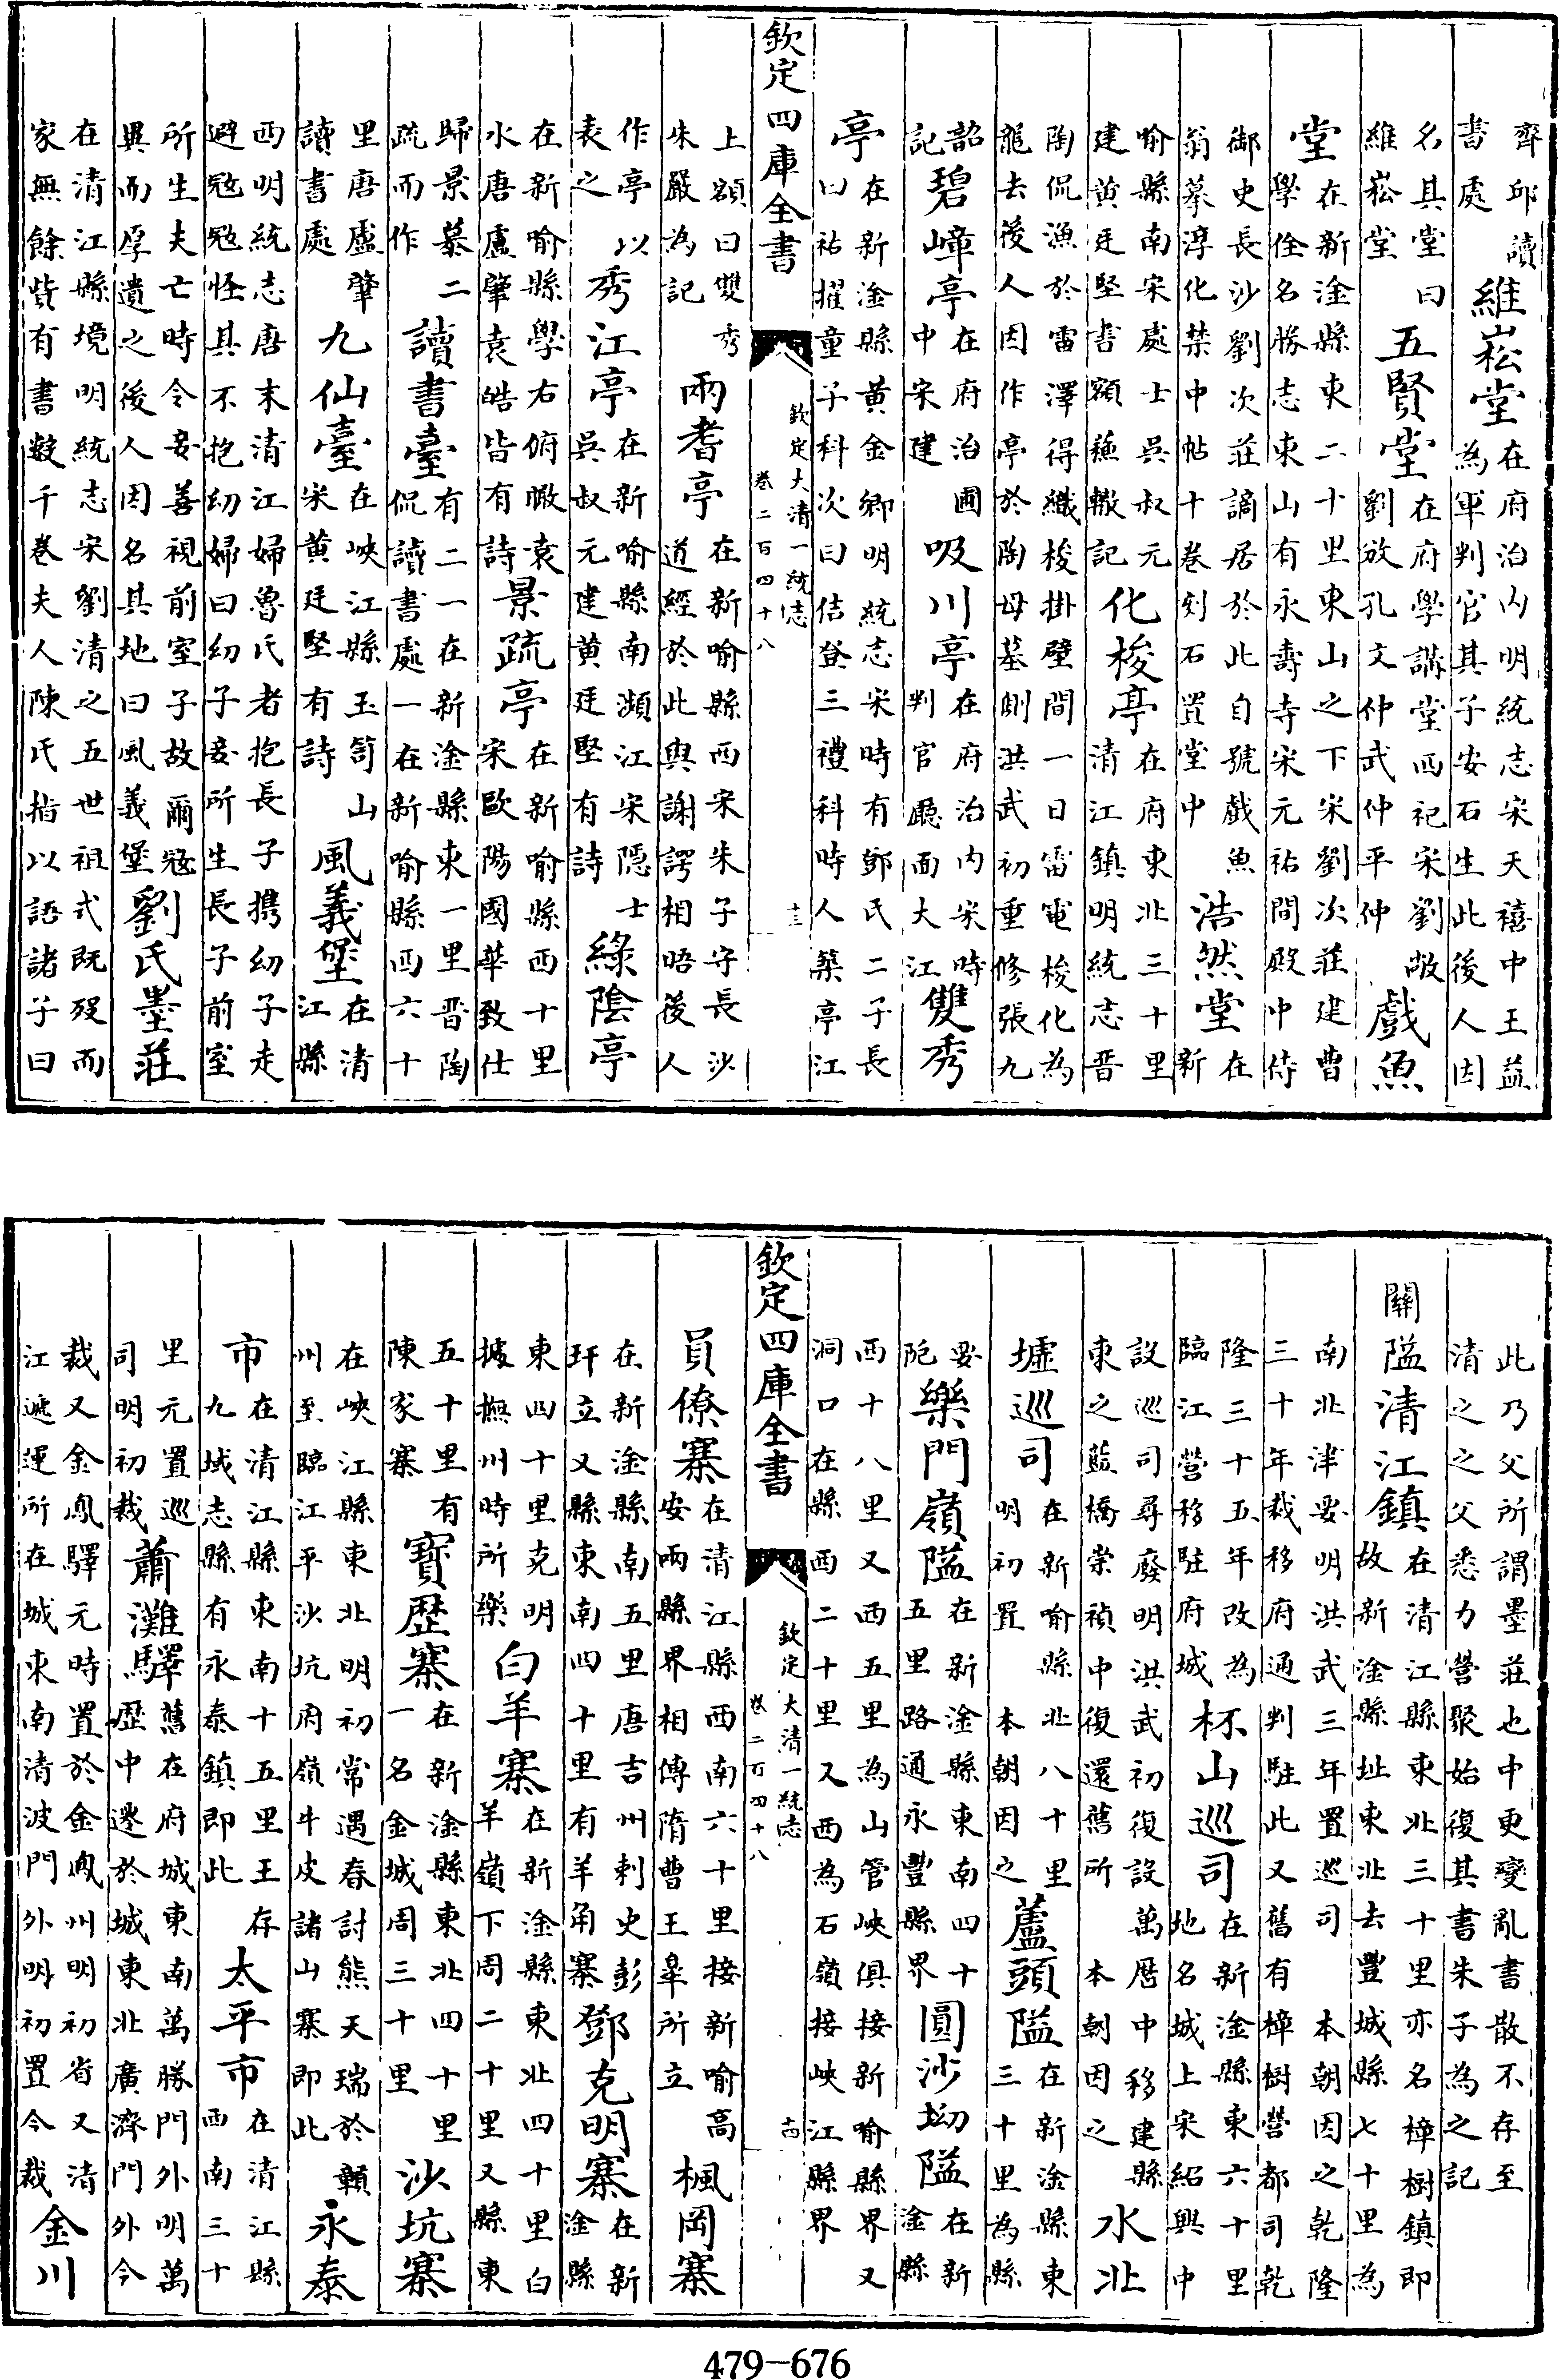 齊邱讀
書處
維崧堂
在府治内明統志宋天禧中王益
為軍判官其子安石生此後人因
名其堂曰
維崧堂
五賢堂
在府學講堂西祀宋劉敞
劉攽孔文仲武仲平仲
戲魚
堂
在新淦縣東二十里東山之下宋劉次莊建曹
學佺名勝志東山有永壽寺宋元祐間殿中侍
御史長沙劉次莊謫居於此自號戲魚
翁摹淳化禁中帖十卷刻石置堂中
浩然堂
在
新
喻縣南宋處士吳叔元
建黄廷堅書額蘓轍記
化梭亭
在府東北三十里
清江鎮明統志晋
陶侃漁於雷澤得織梭掛壁間一日雷電梭化為
龍去後人因作亭於陶母墓側洪武初重修張九
韶
記
碧嶂亭
在府治圃
中宋建
吸川亭
在府治内宋時
判官廳面大江
雙秀
亭
在新淦縣黄金卿明統志宋時有鄧氏二子長
曰祐擢童子科次曰佶登三禮科時人築亭江
欽定四庫全書
欽定大清一統志
卷二百四十八
十三
上額曰雙秀
朱嚴為記
兩耆亭
在新喻縣西宋朱子守長沙
道經於此與謝諤相晤後人
作亭以
表之
秀江亭
在新喻縣南瀕江宋隱士
吳叔元建黄廷堅有詩
綠陰亭
在新喻縣學右俯瞰袁
水唐盧肇袁皓皆有詩
景疏亭
在新喻縣西十里
宋歐陽國華致仕
歸景慕二
疏而作
讀書臺
有二一在新淦縣東一里晋陶
侃讀書處一在新喻縣西六十
里唐盧肇
讀書處
九仙臺
在峽江縣玉笥山
宋黄廷堅有詩
風義堡
在清
江縣
西明統志唐末清江婦魯氏者抱長子携幼子走
避宼宼怪其不抱幼婦曰幼子妾所生長子前室
所生夫亡時令妾善視前室子故爾宼
異而厚遺之後人因名其地曰風義堡
劉氏墨莊
在清江縣境明統志宋劉清之五世祖式既殁而
家無餘貲有書數千卷夫人陳氏指以語諸子曰
此乃父所謂墨莊也中更變亂書散不存至
清之之父悉力營聚始復其書朱子為之記
關隘
清江鎮
在清江縣東北三十里亦名樟樹鎮即
故新淦縣址東北去豐城縣七十里為
南北津要明洪武三年置巡司本朝因之乾隆
三十年裁移府通判駐此又舊有樟樹營都司乾
隆三十五年改為
臨江營移駐府城
杯山巡司
在新淦縣東六十里
地名城上宋紹興中
設巡司尋廢明洪武初復設萬厯中移建縣
東之藍橋崇禎中復還舊所本朝因之
水北
墟巡司
在新喻縣北八十里
明初置本朝因之
蘆頭隘
在新淦縣東
三十里為縣
要
阨
樂門嶺隘
在新淦縣東南四十
五里路通永豐縣界
圓沙坳隘
在新
淦縣
西十八里又西五里為山管峽俱接新喻縣界又
洞口在縣西二十里又西為石嶺接峽江縣界
欽定四庫全書
欽定大清一統志
卷二百四十八
十四
員僚寨
在清江縣西南六十里接新喻高
安兩縣界相傳隋曹王臯所立
楓岡寨
在新淦縣南五里唐吉州刺史彭
玕立又縣東南四十里有羊角寨
鄧克明寨
在新
淦縣
東四十里克明
據撫州時所築
白羊寨
在新淦縣東北四十里白
羊嶺下周二十里又縣東
五十里有
陳家寨
寶歴寨
在新淦縣東北四十里
一名金城周三十里
沙坑寨
在峽江縣東北明初常遇春討熊天瑞於贛
州至臨江平沙坑府嶺牛皮諸山寨即此
永泰
市
在清江縣東南十五里王存
九域志縣有永泰鎮即此
太平市
在清江縣
西南三十
里元置巡
司明初裁
蕭灘驛
舊在府城東南萬勝門外明萬
歴中遷於城東北廣濟門外今
裁又金鳳驛元時置於金鳳州明初省又清
江遞運所在城東南清波門外明初置今裁
金川
479－676